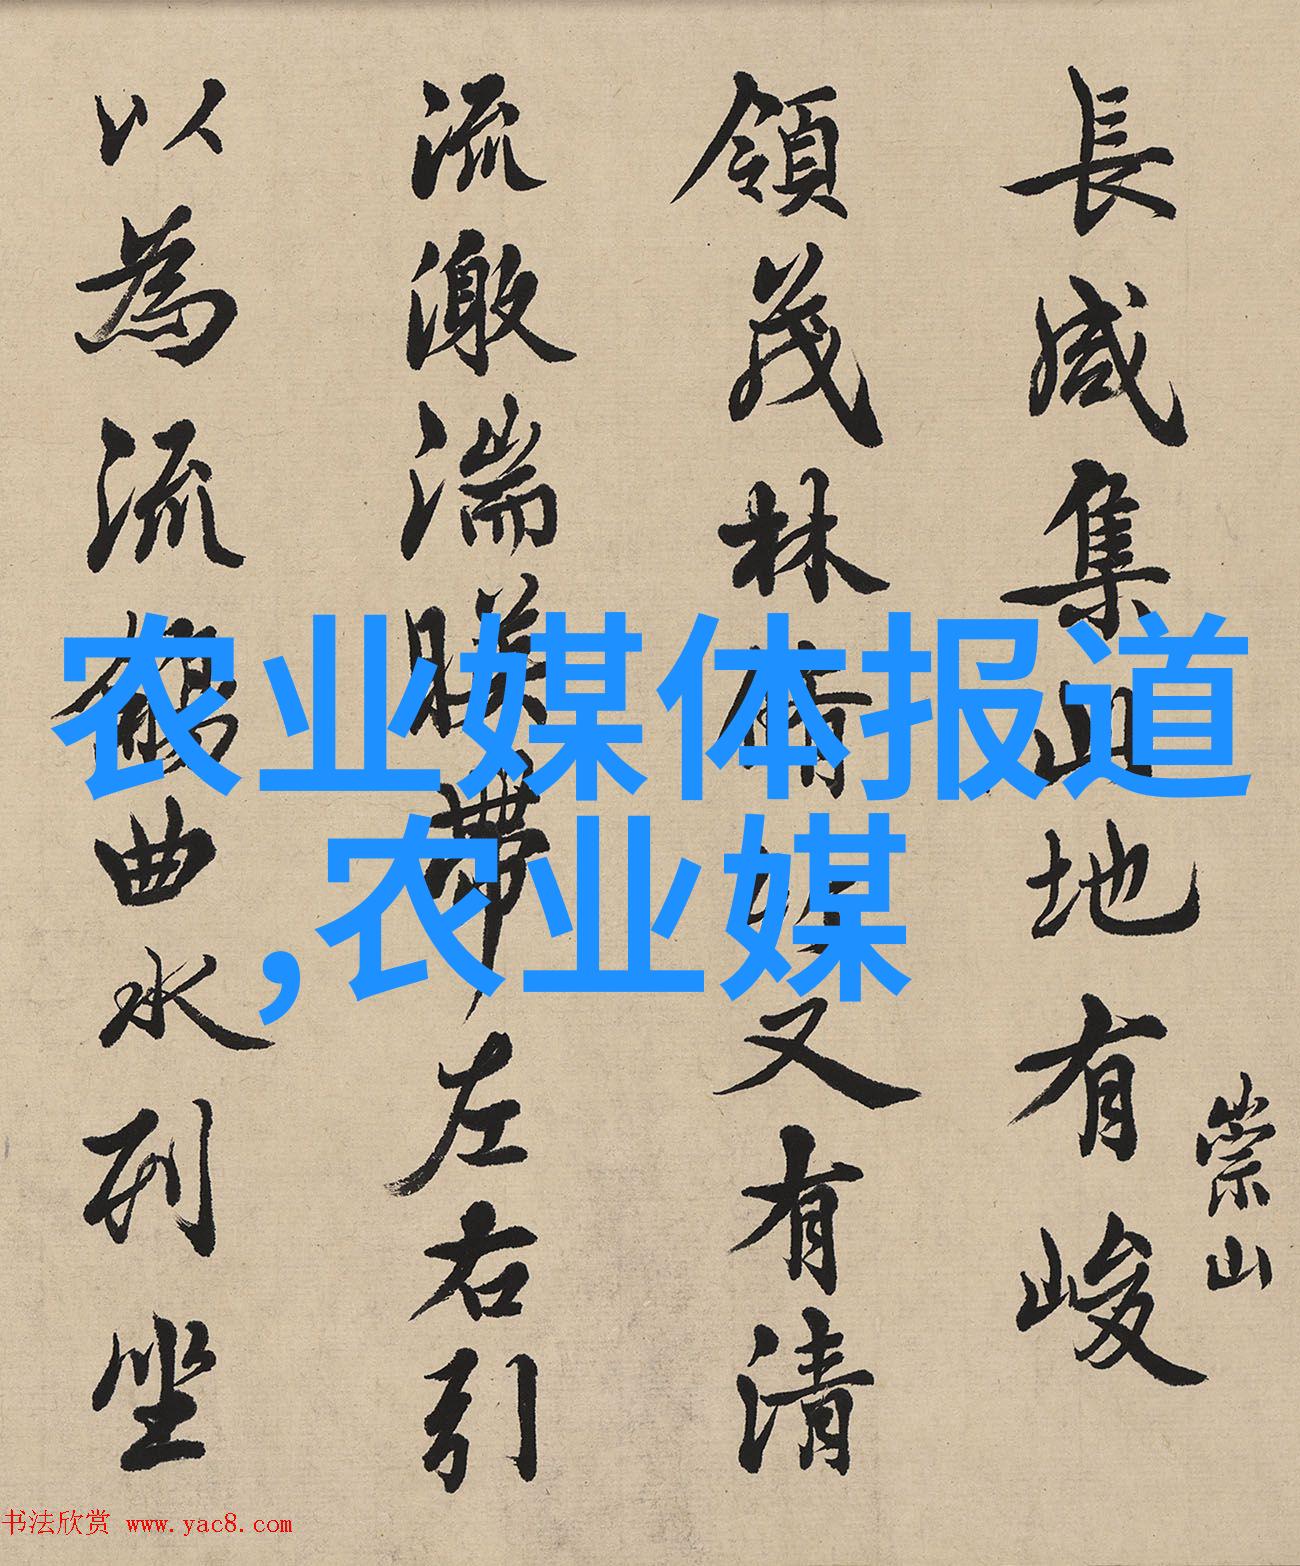 長咸集此地有峻
崇山
領茂林脩竹又有清
流激湍暎帶左右引
以為流觴曲水列坐
农业媒体报道
,农业媒
书法欣赏 www.yac8.com